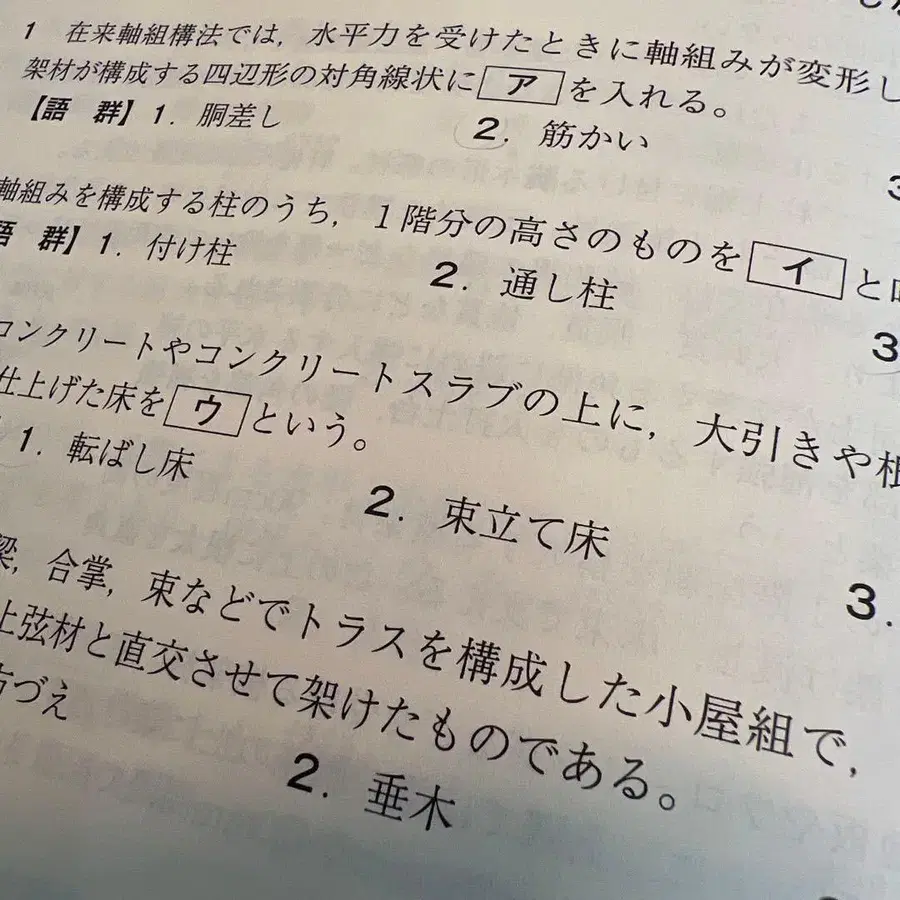 1 在来軸組構法では，水平力を受けたときに軸組みが変形し
架材が構成する四辺形の対角線状に ア を入れる。
【語 群】 1． 胴差し 2． 筋かい 3
軸組みを構成する柱のうち，1階分の高さのものを イ と
語 群】 1． 付け柱 2． 通し柱 3
コンクリートやコンクリートスラブの上に，大引きや根
仕上げた床を ウ という。
1． 転ばし床 2． 束立て床 3．
梁，合掌，束などでトラスを構成した小屋組で，
上弦材と直交させて架けたものである。
方づえ 2． 垂木